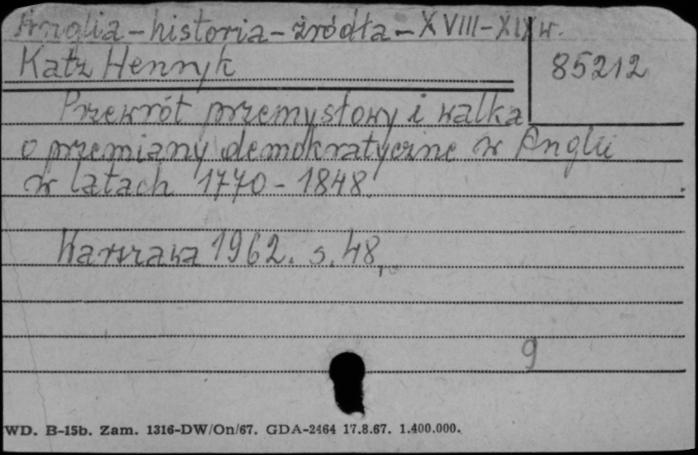 Anglia - historia - źródła - XVIII-XIX w.
Katz Henryk
85212
Przewrót przemysłowy i walka
o przemiany demokratyczne w Anglii
w latach 1770-1848.
Warszawa 1962. s. 48,
9
WD. B-15b. Zam. 1316-DW/On/67. GDA-2464 17.8.67. 1.400.000.